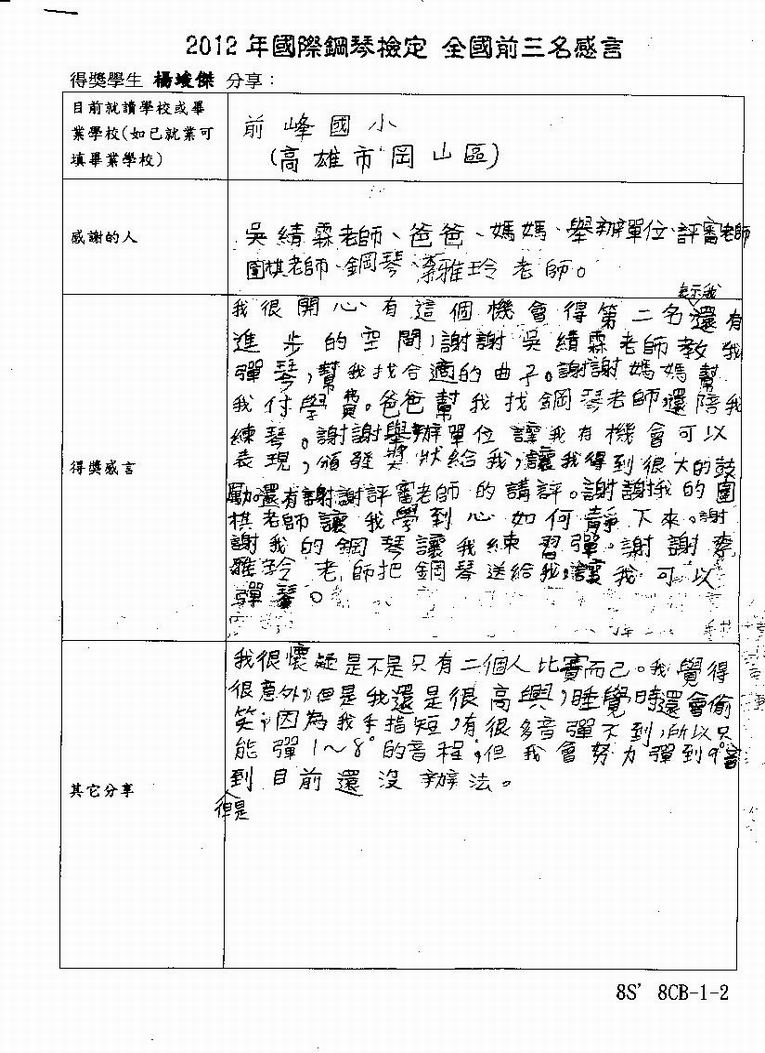 2012年國際鋼琴檢定 全國前三名感言
得獎學生 楊竣傑 分享：
目前就讀學校或畢
業學校(如已就業可
填畢業學校)
前峰國小
(高雄市岡山區)
感謝的人
吳綪霖老師、爸爸、媽媽、舉辦單位、評審老師
圍棋老師、鋼琴、李雅玲老師。
得獎感言
表示我
我很開心有這個機會得第二名還有
進步的空間，謝謝吳綪霖老師教我
彈琴，幫我找合適的曲子。謝謝媽媽幫
我付學費。爸爸幫我找鋼琴老師還陪我
練琴。謝謝舉辦單位讓我有機會可以
表現，頒發獎狀給我，讓我得到很大的鼓
勵。還有謝謝評審老師的講評。謝謝我的圍
棋老師讓我學到心如何靜下來。謝
謝我的鋼琴讓我練習彈。謝謝李
雅玲老師把鋼琴送給我，讓我可以
彈琴。
其它分享
我很懷疑是不是只有二個人比賽而已。我覺得
很意外，但是我還是很高興，睡覺時還會偷
笑，因為我手指短，有很多音彈不到，所以只
能彈1～8°的音程，但我會努力彈到9°音
到目前還沒辦法。
但是
8S' 8CB-1-2